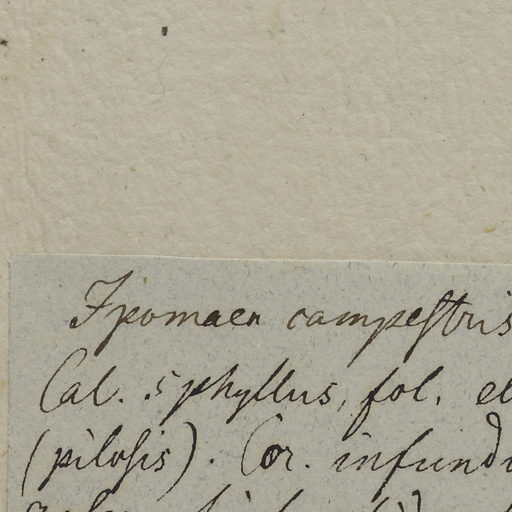 Ipomaea campeſtris
Cal. 5phyllus, fol. el
(piloſis). Cor. infund